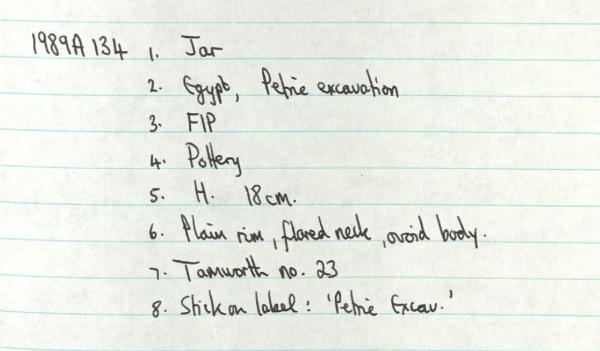 1989A 134 1. Jar
2. Egypt, Petrie excavation
3. FIP
4. Pottery
5. H. 18cm.
6. Plain rim, flared neck, ovoid body.
7. Tamworth no. 23
8. Stick on label: 'Petrie Excav.'